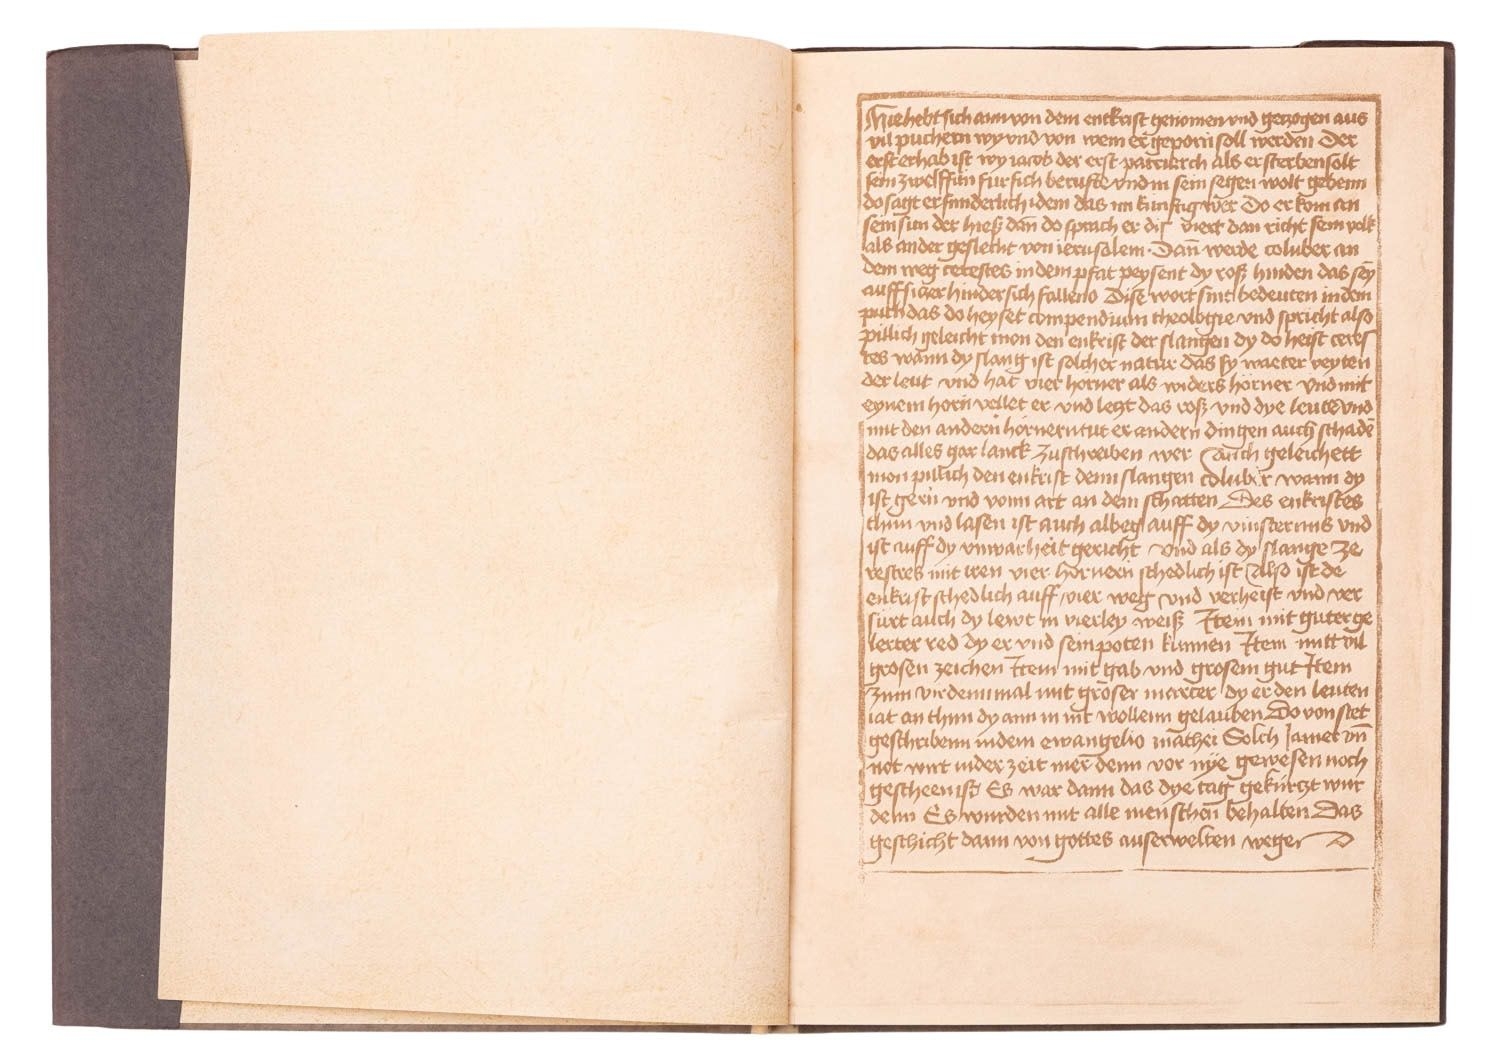 Hie hebt sich ann von dem entkrist genomen vnd getzogen aus
vil puchern wy vnd von wem er geporn soll werden Der
erst erhab ist wy iacob der erst patriarch als er sterben solt
sein zwelff sun fur sich berufte vnd in sein segen wolt gebenn
do sagt er sunderlich idem das im kunftig wer Do er kom an
sein sun der hieß dan̄ do sprach er dis wert dan richt sein volk
als ander geslecht von ierusalem. Dan̄ werde coluber an
dem weg cerestes in dem pfat peysent dy roß hinden das sey
auffsitzer hindersich fallend Dise wort sint bedeuten in dem
puch das do heyset compendium theologie vnd spricht also
pillich geleicht mon den enkrist der slangen dy do heist ceres
tes wann dy slang ist solcher natur das sy wartet
der leut vnd hat vier hörner als widers hörner vnd mit
eynem horn vellet er vnd letzt das roß vnd dye leute vnd
mit den andern hörnern tut er andern dingen auch schadē
das alles gar lanck zuschreiben wer Auch geleichett
mon pillich den enkrist dem slangen coluber wann dy
ist gern vnd vonn art an dem schatten Des enkristes
thun vnd lasen ist auch albeg auff dy vinsternus vnd
ist auff dy vnwarheit gericht vnd als dy slange ze
restres mit iren vier hörnern schedlich ist Also ist de
enkrist schedlich auff vier weg vnd verheist vnd ver
furt auch dy lewt in vierley weiß Item mit guter ge
lerter red dy er vnd sein poten kunnen Item mitt vil
grosen zeichen Item mit gab vnd grosem gut Item
zum virdenmal mit groser marter dy er den leuten
iat an thun dy ann in nit wollenn gelauben Do von stet
geschribenn in dem ewangelio mathei Solch Jamer vn̄
not wirt in der zeit mer denn vor nye gewesen noch
gescheen ist Es war dann das dye tag gekürtzt wur
denn Es wurden nit alle menschen behalten Das
geschicht dann von gottes auserwelten wegen